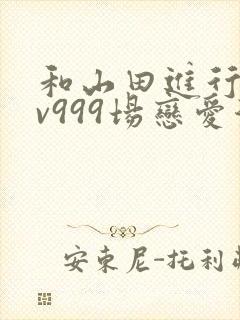 和山田進行
v999場戀愛
安東尼-托利